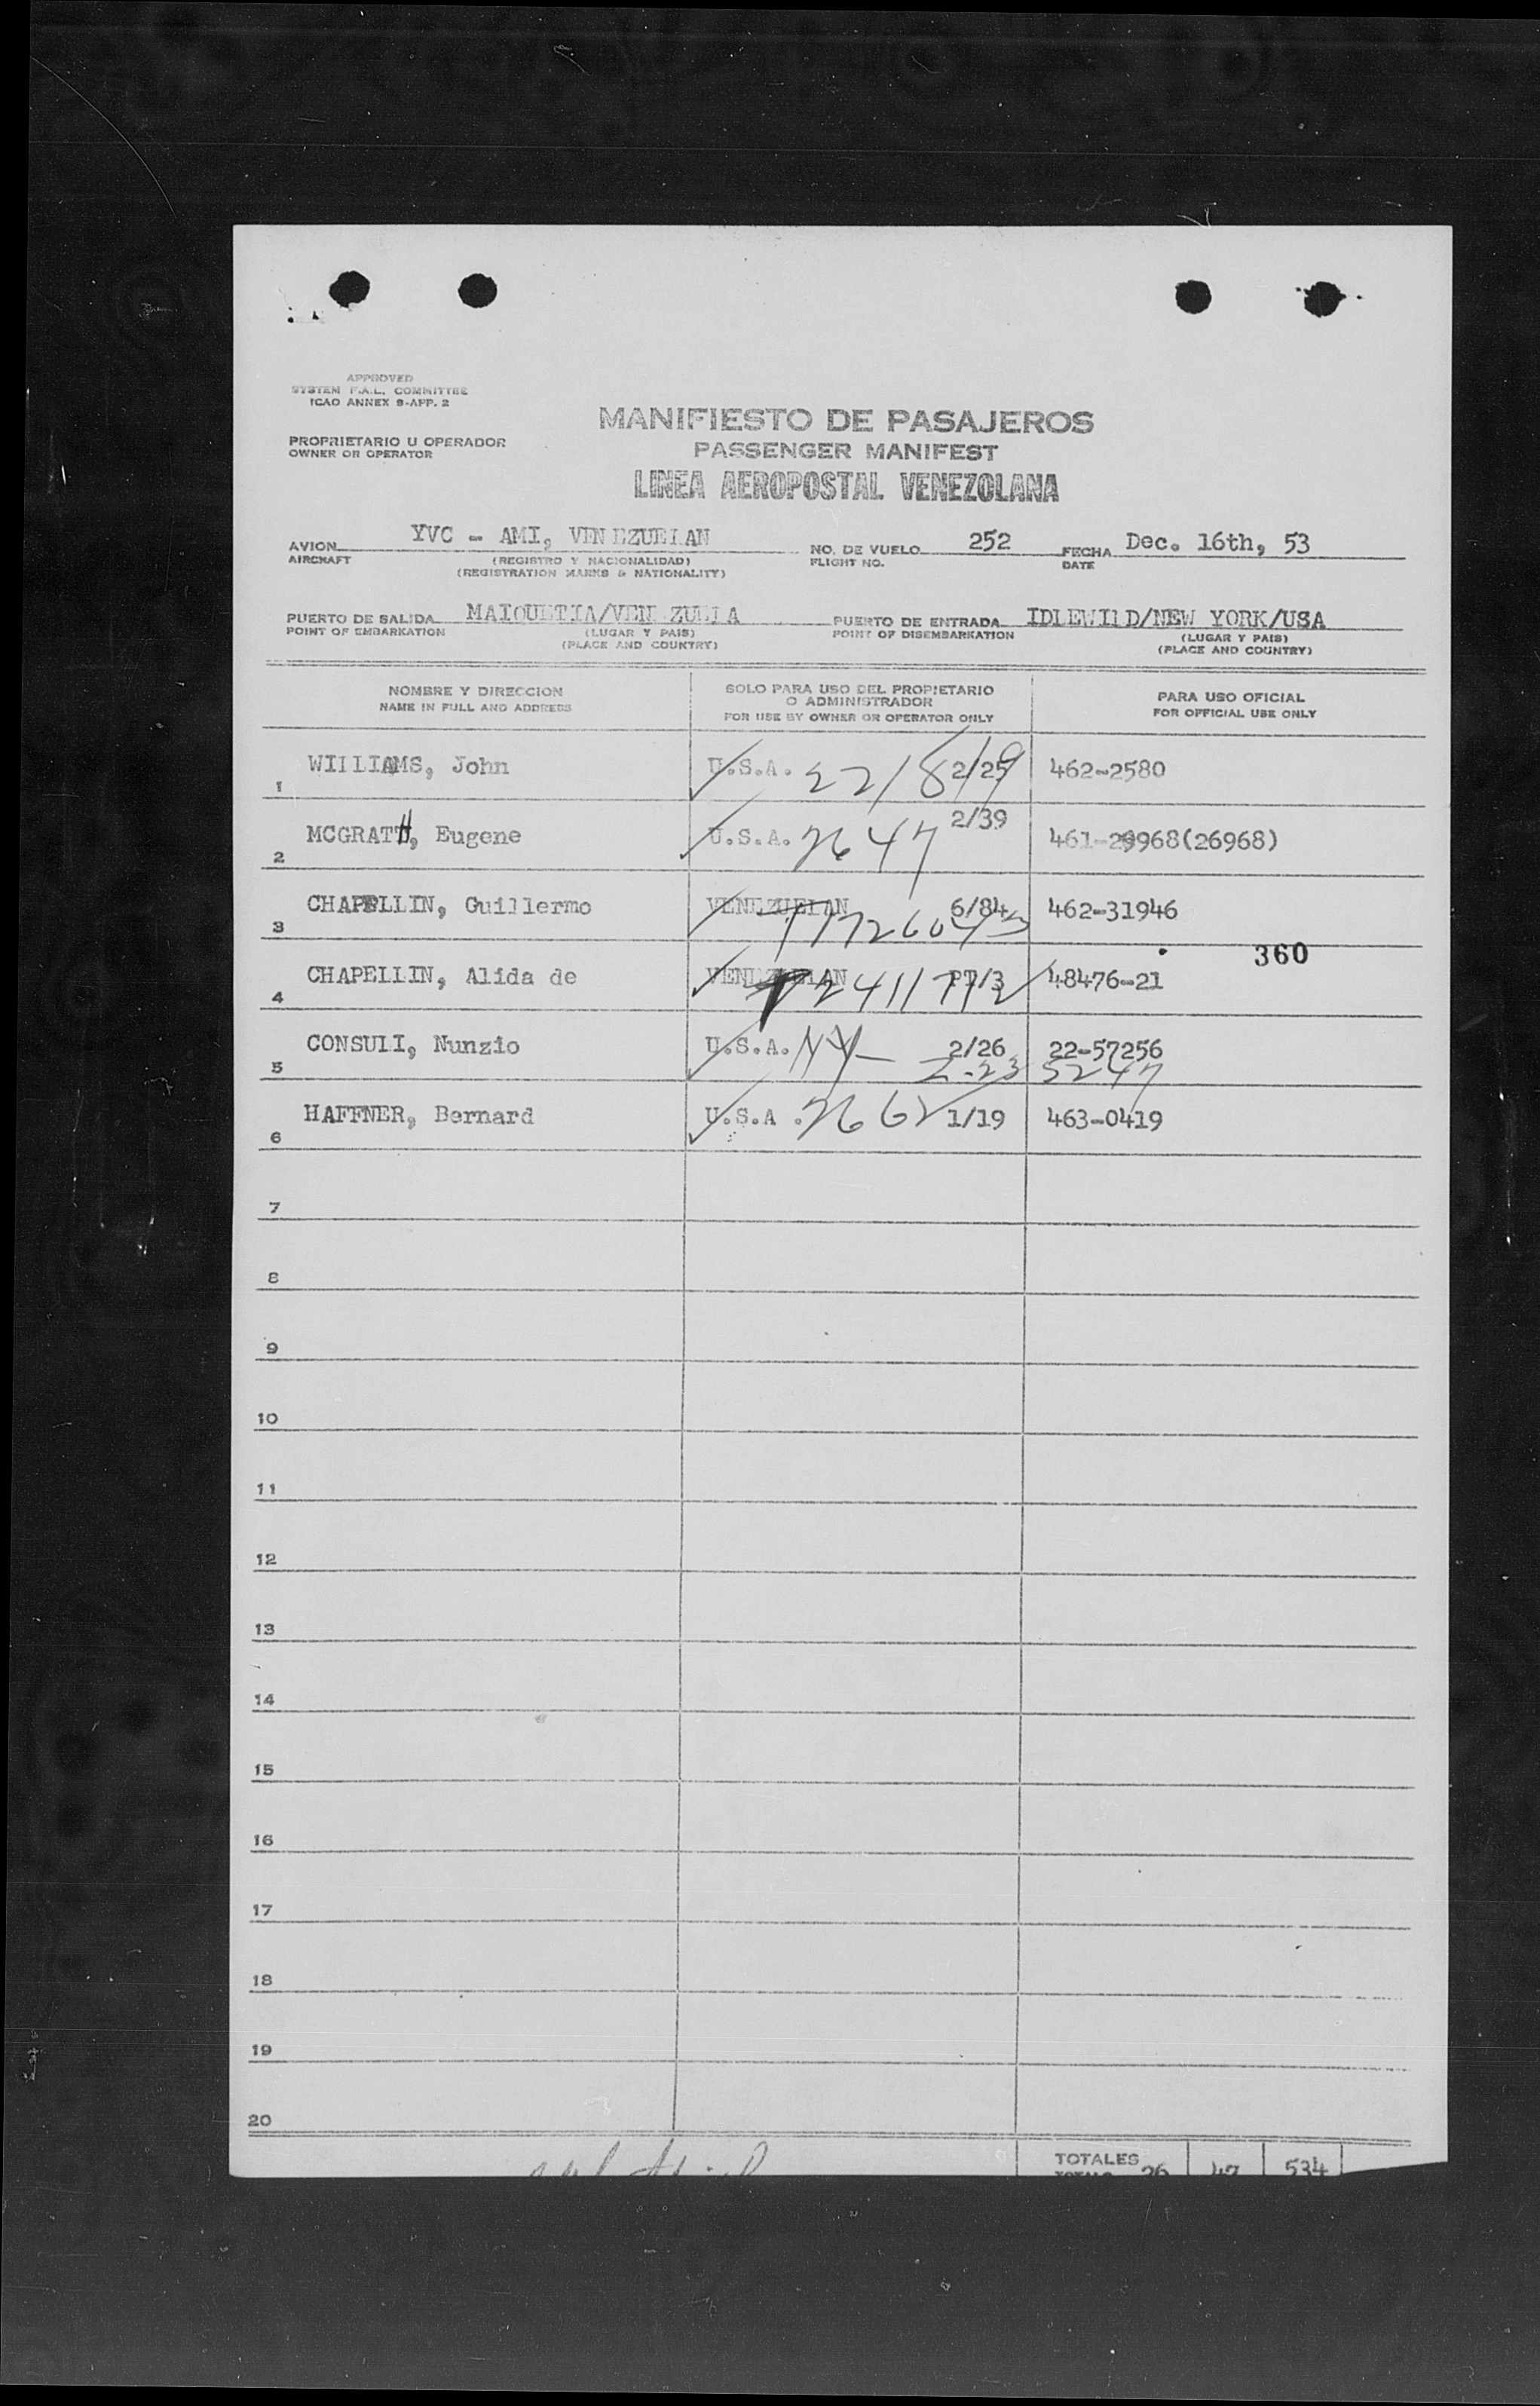 APPROVED
SYSTEM F.A.L. COMMITTEE
ICAO ANNEX 9-APP. 2
PROPRIETARIO U OPERADOR
OWNER OR OPERATOR
MANIFIESTO DE PASAJEROS
PASSENGER MANIFEST
LINEA AEROPOSTAL VENEZOLANA
AVION YVC - AMI, VENEZUELAN NO. DE VUELO 252 FECHA Dec. 16th, 53
AIRCRAFT (REGISTRO Y NACIONALIDAD) FLIGHT NO. DATE
(REGISTRATION MARKS & NATIONALITY)
PUERTO DE SALIDA MAIQUETIA/VEN ZUELA PUERTO DE ENTRADA IDLEWILD/NEW YORK/USA
POINT OF EMBARKATION (LUGAR Y PAIS) POINT OF DISEMBARKATION (LUGAR Y PAIS)
(PLACE AND COUNTRY) (PLACE AND COUNTRY)
NOMBRE Y DIRECCION SOLO PARA USO DEL PROPIETARIO O ADMINISTRADOR PARA USO OFICIAL
NAME IN FULL AND ADDRESS FOR USE BY OWNER OR OPERATOR ONLY FOR OFFICIAL USE ONLY
1 WILLIAMS, John U.S.A. 2218 2/25 462-2580
2 MCGRATH, Eugene U.S.A. 2647 2/39 461-29968(26968)
3 CHAPELLIN, Guillermo VENEZUELAN 6/84 462-31946
360
4 CHAPELLIN, Alida de VENEZUELAN PT/3 48476-21
5 CONSULI, Nunzio U.S.A. NY 2/26 22-57256
2-23 5247
6 HAFFNER, Bernard U.S.A. 2662 1/19 463-0419
7
8
9
10
11
12
13
14
15
16
17
18
19
20
TOTALES 26 47 534